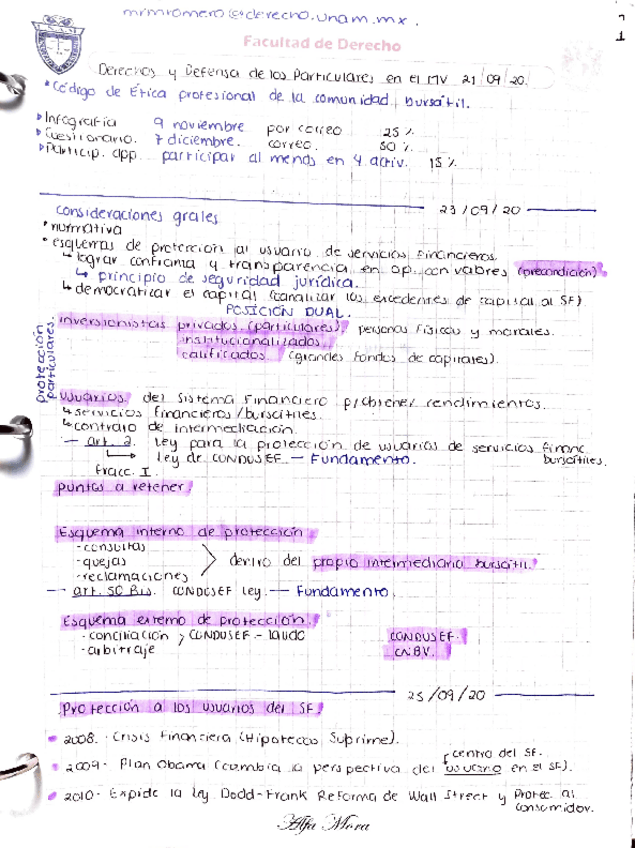 mrmromero@derecho.unam.mx.
1
Facultad de Derecho
Derechos y Defensa de los Particulares en el MV 21/09/20.
* Código de Ética profesional de la comunidad bursátil.
Infografía 9 noviembre por correo 25 %
Cuestionario. 7 diciembre. correo. 50 %.
Particip. app. participar al menos en 4 activ. 15 %
23/09/20
Consideraciones grales
normativa
esquemas de protección al usuario de servicios financieros.
lograr confianza y transparencia en op. con valores (precondición)
principio de seguridad jurídica.
democratizar el capital (canalizar los excedentes de capital al SF)
POSICIÓN DUAL.
inversionistas privados (particulares) personas físicas y morales.
institucionalizados
calificados (grandes fondos de capitales).
protección particulares.
usuarios del Sistema Financiero p/obtener rendimientos.
servicios financieros/bursátiles.
contrato de intermediación.
— art. 2. ley para la protección de usuarios de servicios financ. bursátiles.
fracc. I. ley de CONDUSEF. — Fundamento.
puntos a retener
Esquema interno de protección
- consultas
- quejas dentro del propio intermediario bursátil.
- reclamaciones
— art. 50 Bis. CONDUSEF ley. — Fundamento.
Esquema externo de protección.
- conciliación > CONDUSEF - laudo CONDUSEF.
- arbitraje CNBV.
25/09/20
Protección a los usuarios del SF.
2008. Crisis Financiera (Hipotecas Suprime).
centro del SF.
2009- Plan Obama (cambia la perspectiva del usuario en el SF).
2010- Expide la ley Dodd-Frank Reforma de Wall Street y Protec. al consumidor.
Alfa Mora